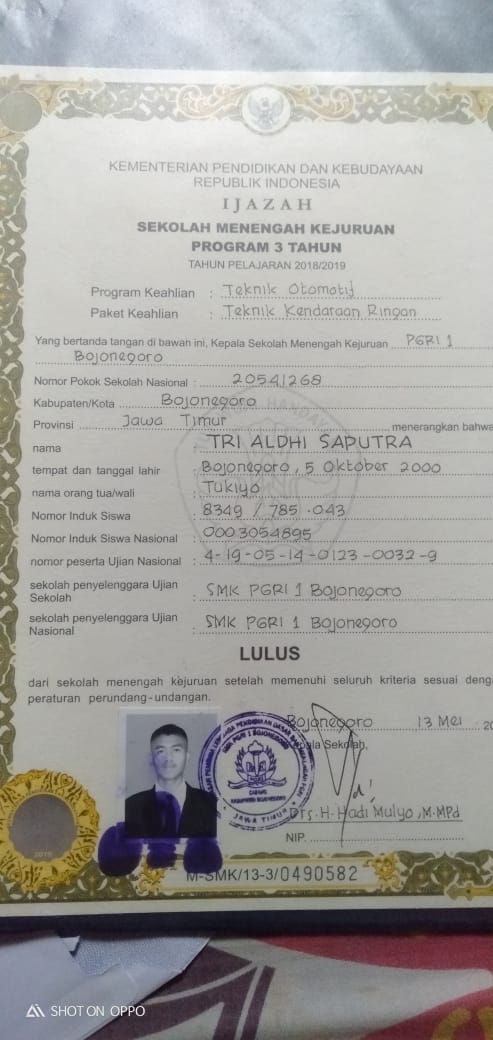 KEMENTERIAN PENDIDIKAN DAN KEBUDAYAAN
REPUBLIK INDONESIA
IJAZAH
SEKOLAH MENENGAH KEJURUAN
PROGRAM 3 TAHUN
TAHUN PELAJARAN 2018/2019
Program Keahlian : Teknik Otomotif
Paket Keahlian : Teknik Kendaraan Ringan
Yang bertanda tangan di bawah ini, Kepala Sekolah Menengah Kejuruan PGRI 1
Bojonegoro
Nomor Pokok Sekolah Nasional : 20541268
Kabupaten/Kota : Bojonegoro
Provinsi : Jawa Timur menerangkan bahwa
nama : TRI ALDHI SAPUTRA
tempat dan tanggal lahir : Bojonegoro, 5 Oktober 2000
nama orang tua/wali : Tukiyo
Nomor Induk Siswa : 8349 / 785 . 043
Nomor Induk Siswa Nasional : 0003054895
nomor peserta Ujian Nasional : 4-19-05-14-0123-0032-9
sekolah penyelenggara Ujian
Sekolah : SMK PGRI 1 Bojonegoro
sekolah penyelenggara Ujian
Nasional : SMK PGRI 1 Bojonegoro
LULUS
dari sekolah menengah kejuruan setelah memenuhi seluruh kriteria sesuai
peraturan perundang-undangan.
Bojonegoro 13 Mei
Kepala Sekolah,
SMK PGRI 1 BOJONEGORO
JAWA TIMUR
Drs. H. Hadi Mulyo, M.MPd
NIP.
M-SMK/13-3/0490582
SHOT ON OPPO